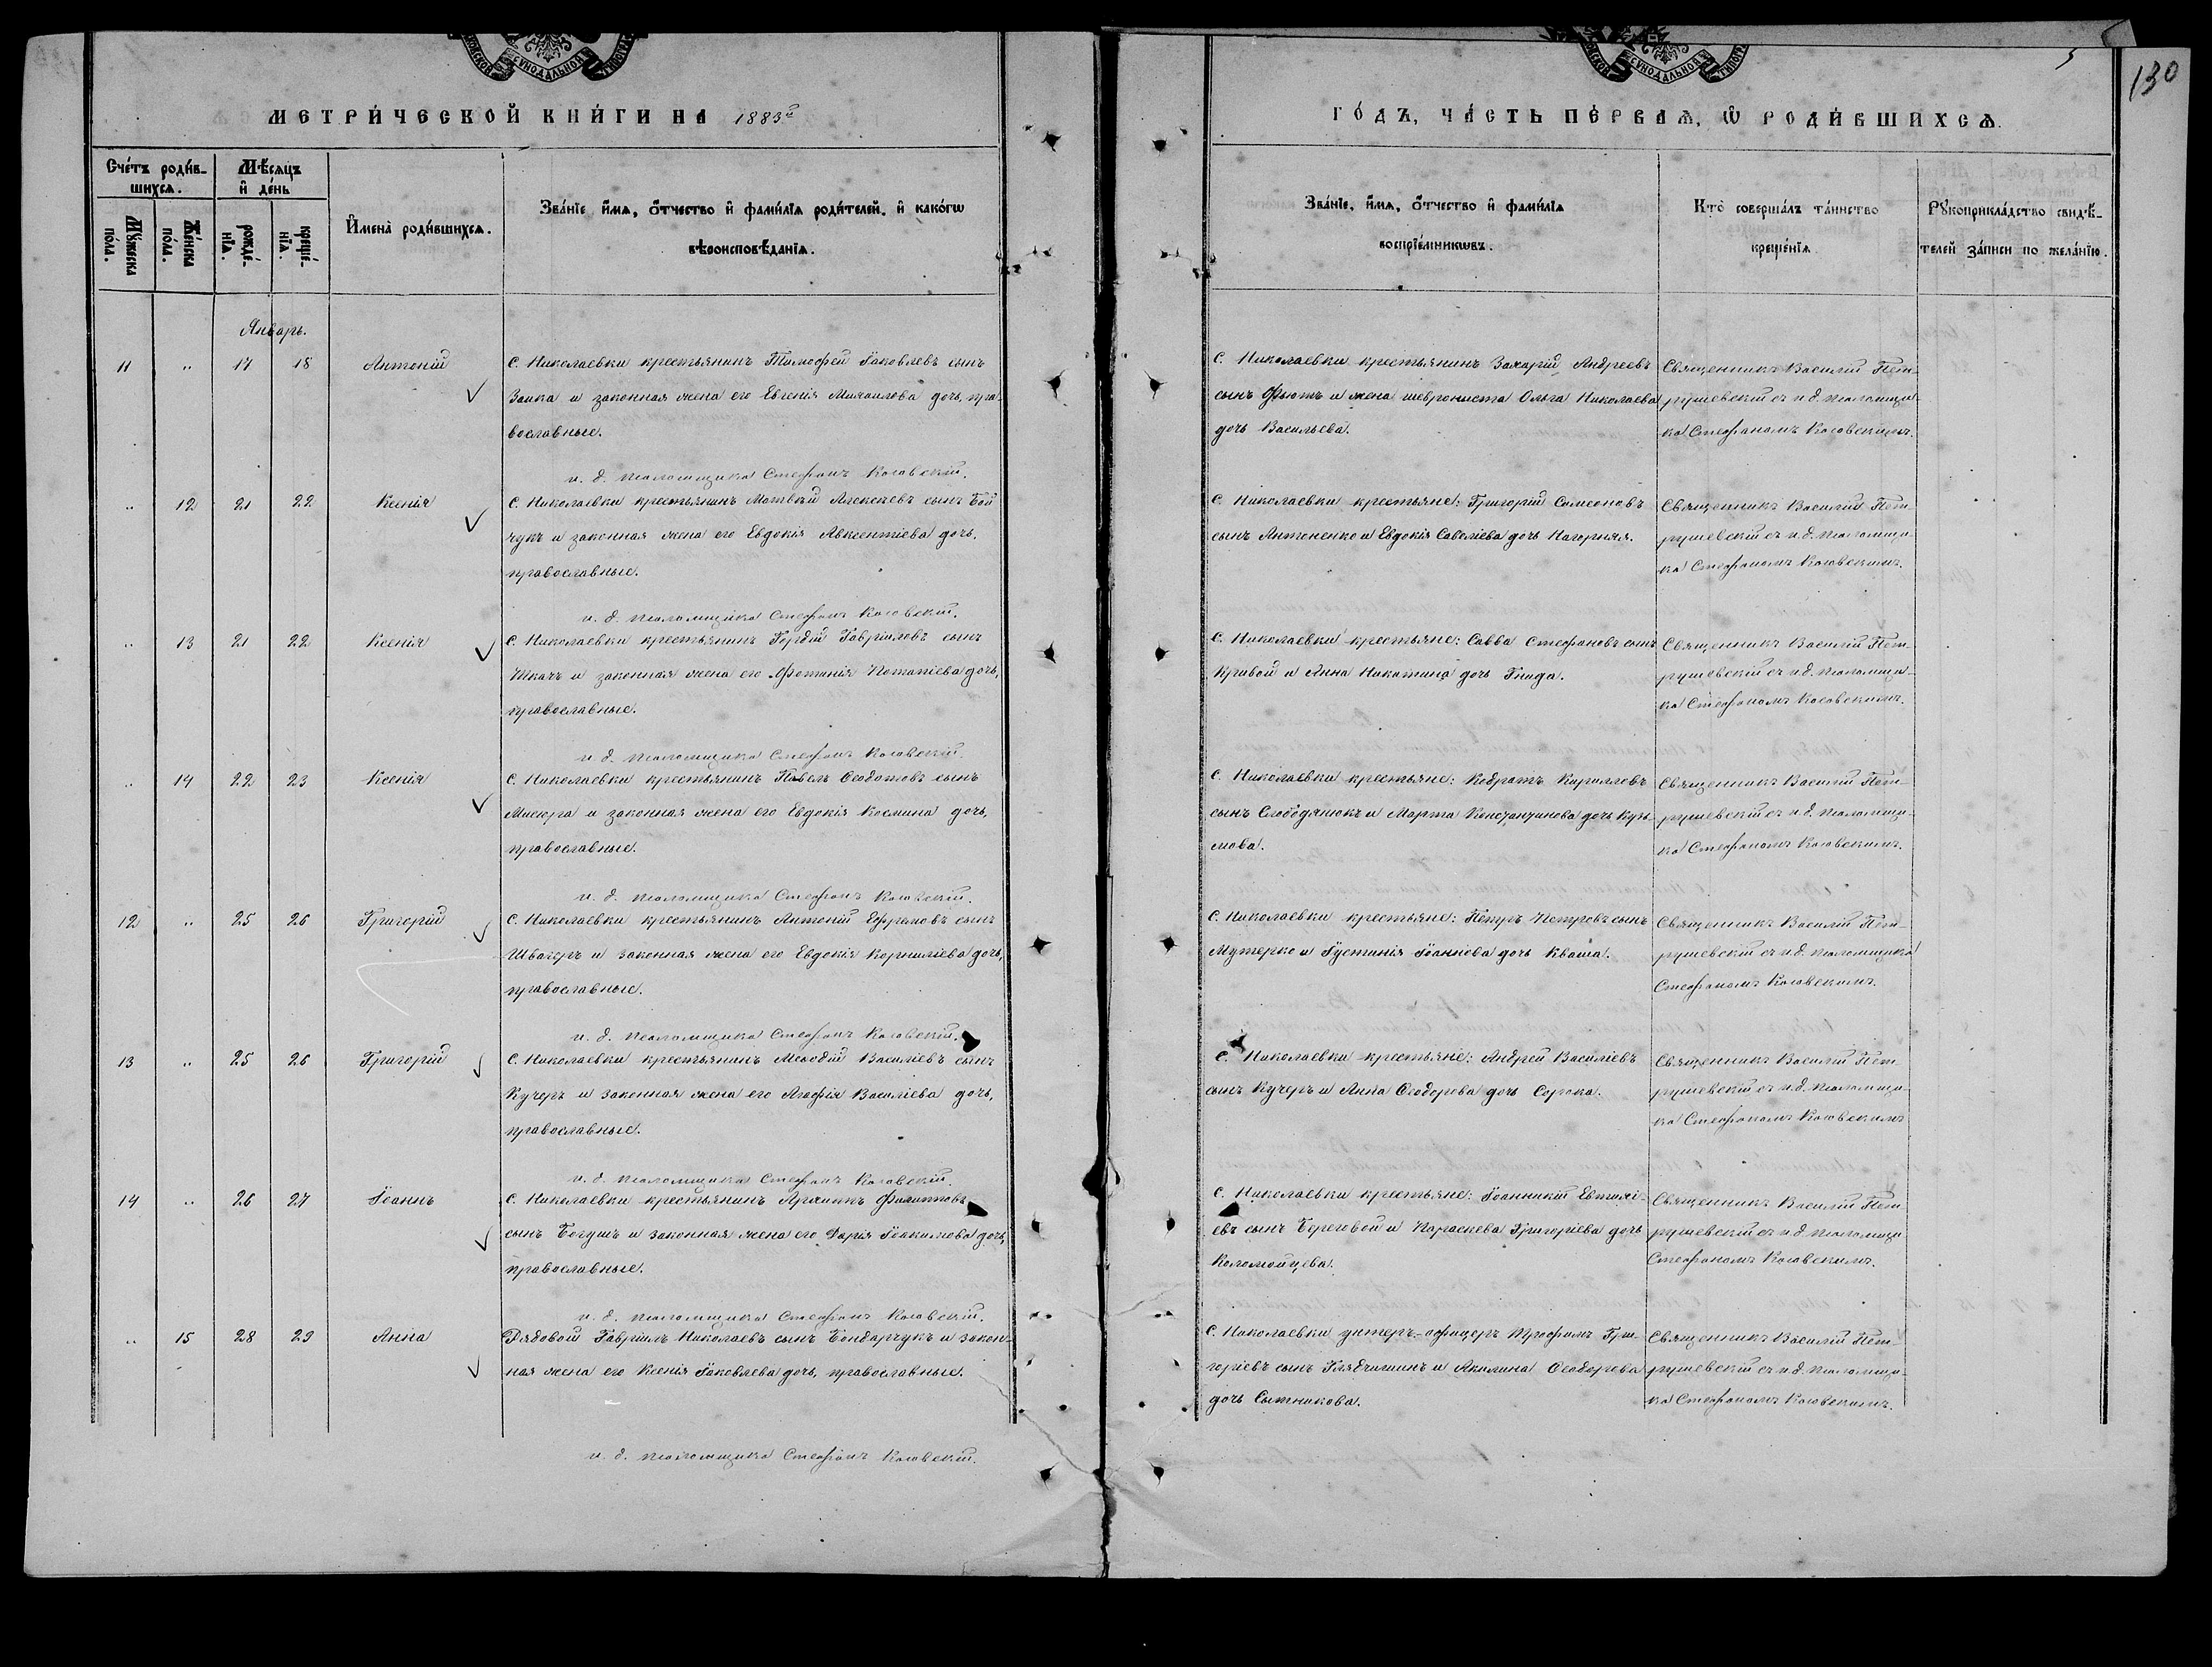 МЕТРИ́ЧЕСКОЙ КНИ́ГИ НА 1883 г
ГО́ДЪ, ЧА́СТЬ ПЕ́РВАѦ, Ѡ РОДИ́ВШИХСѦ.
130
Сче́тъ роди́в-
шихсѧ.
Мѣ́сѧцъ
и҆ де́нь
Мꙋ́жеска
по́ла.
Же́нска
по́ла.
рожде́-
нїѧ.
креще́-
нїѧ.
И҆мена̀ роди́вшихсѧ.
Зва́нїе, и҆́мѧ, ѻ҆́тчество и҆ фами́лїѧ роди́телей, и҆ како́гѡ
вѣроисповѣ́данїѧ.
Зва́нїе, и҆́мѧ, ѻ҆́тчество и҆ фами́лїѧ
воспрїе́мникѡвъ.
Кто̀ соверша́лъ та́инство
креще́нїѧ
Рꙋкоприкла́дство свидѣ́-
телей за́писи по жела́нїю.
Январь.
11 " 17 18 Антоній
С. Николаевки крестьянинъ Тимофей Іаковлевъ сынъ
Заика и законная жена его Евгенія Михаилова дочь, пра-
вославные.
и. д. псаломщика Стефанъ Косовскій.
С. Николаевки крестьянинъ Захарій Андреевъ
сынъ Фьютъ и жена шеврониста Ольга Николаева
дочь Васильева.
Священникъ Василій Пет-
рушевскій съ и. д. псаломщи-
ка Стефаномъ Косовскимъ.
" 12 21 22 Ксенія
С. Николаевки крестьянинъ Матвѣй Алексѣевъ сынъ Бой
чукъ и законная жена его Евдокія Авксентіева дочь,
православные.
и. д. псаломщика Стефанъ Косовскій.
С. Николаевки крестьяне: Григорій Симеоновъ
сынъ Антоненко и Евдокія Савеліева дочь Нагорняя.
Священникъ Василій Пет-
рушевскій съ и. д. псаломщи-
ка Стефаномъ Косовскимъ.
" 13 21 22 Ксенія
С. Николаевки крестьянинъ Гордій Гавріиловъ сынъ
Ткачъ и законная жена его Фотинія Потапіева дочь,
православные.
и. д. псаломщика Стефанъ Косовскій.
С. Николаевки крестьяне: Савва Стефановъ сынъ
Кривой и Анна Никитина дочь Гнида.
Священникъ Василій Пет-
рушевскій съ и. д. псаломщи-
ка Стефаномъ Косовскимъ.
" 14 22 23 Ксенія
С. Николаевки крестьянинъ Павелъ Ѳеодотовъ сынъ
Мисюра и законная жена его Евдокія Космина дочь,
православные.
и. д. псаломщика Стефанъ Косовскій.
С. Николаевки крестьяне: Кодратъ Кирилловъ
сынъ Слободянюкъ и Марта Константинова дочь Кузь-
мова.
Священникъ Василій Пет-
рушевскій съ и. д. псаломщи-
ка Стефаномъ Косовскимъ.
12 " 25 26 Григорій
С. Николаевки крестьянинъ Антоній Ефремовъ сынъ
Швагеръ и законная жена его Евдокія Корниліева дочь,
православные.
и. д. псаломщика Стефанъ Косовскій.
С. Николаевки крестьяне: Петръ Петровъ сынъ
Мутерко и Іустинія Іоаннова дочь Кваша.
Священникъ Василій Пет-
рушевскій съ и. д. псаломщика
Стефаномъ Косовскимъ.
13 " 25 26 Григорій
С. Николаевки крестьянинъ Меѳодій Василіевъ сынъ
Кучеръ и законная жена его Агафія Василіева дочь,
православные.
и. д. псаломщика Стефанъ Косовскій.
С. Николаевки крестьяне: Андрей Василіевъ
сынъ Кучеръ и Анна Ѳеодорова дочь Сорока.
Священникъ Василій Пет-
рушевскій съ и. д. псаломщи-
ка Стефаномъ Косовскимъ
14 " 26 27 Іоаннъ
С. Николаевки крестьянинъ Архиппъ Филипповъ
сынъ Богушъ и законная жена его Дарія Іоакимова дочь,
православные.
и. д. псаломщика Стефанъ Косовскій.
С. Николаевки крестьяне: Іоанникій Евтихі-
евъ сынъ Береговой и Параскева Григоріева дочь
Коломойцева.
Священникъ Василій Пет-
рушевскій съ и. д. псаломщи
Стефаномъ Косовскимъ.
" 15 28 29 Анна
Рядовой Гавріилъ Николаевъ сынъ Бондарчукъ и закон-
ная жена его Ксенія Іаковлева дочь, православные.
и. д. псаломщика Стефанъ Косовскій.
С. Николаевки унтеръ-офицеръ Трофимъ Гри-
горіевъ сынъ и Акилина Ѳеодорова
дочь Сытникова.
Священникъ Василій Пет-
рушевскій съ и. д. псаломщи-
ка Стефаномъ Косовскимъ.